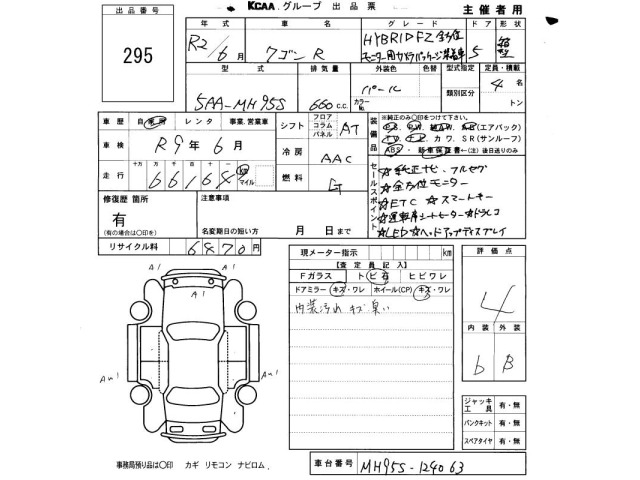 出品番号
295
KCAA グループ 出品票
主催者用
年式 車名 グレード ドア 形状
R2/6月 ワゴンR HYBRID FZ 全方位
モニター用カメラパッケージ装着車 5
型式 排気量 外装色 色替 型式指定 定員・積載
5AA-MH95S 660 C.C. パール カラーNo. 類別区分 4名
トン
車歴 自家用 レンタ 事業、営業車
シフト フロア コラム パネル AT
車検 R9年6月
冷房 AAC
走行 十万 万 千 百 十 一
66164 km マイル
燃料 G
装備品 ※純正のみ〇印をつけて下さい。
(エアバック)
カワ SR(サンルーフ)
ABS 新車保証書←(注)後日送りのみ
セールスポイント
☆純正ナビ、フルセグ
☆全方位モニター
☆ETC ☆スマートキー
☆運転席シートヒーター ☆ドラレコ
☆LED ☆ヘッドアップディスプレイ
修復歴 箇所
有
(有の場合は〇印を)
注意事項
名変期日の短い方 月 日まで
リサイクル料 6470円
現メーター指示 km
【査定員記入】
Fガラス トビ石 ヒビワレ
ドアミラー キズ・ワレ ホイール(CP) キズ・ワレ
内装汚れ キズ 臭い
評価点
4
内装 外装
b B
A1 A1
A1
A1
AU1 AU1
ジャッキ工具 有・無
パンクキット 有・無
スペアタイヤ 有・無
事務局預り品は〇印 カギ リモコン ナビロム.
車台番号 MH95S-124063